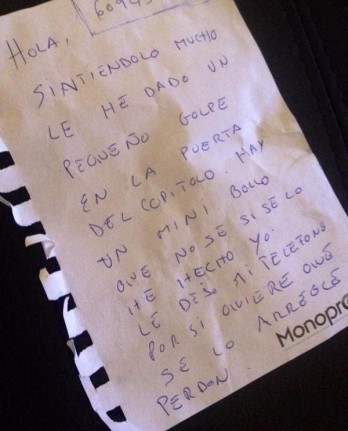 HOLA,
SINTIENDOLO MUCHO
LE HE DADO UN
PEQUEÑO GOLPE
EN LA PUERTA
DEL COPITOLO. HAY
UN MINI BOLLO
QUE NO SE SI SE LO
HE HECHO YO.
LE DEJO MI TELEFONO
POR SI QUIERE QUE
SE LO ARREGLE
PERDON.
Monopr